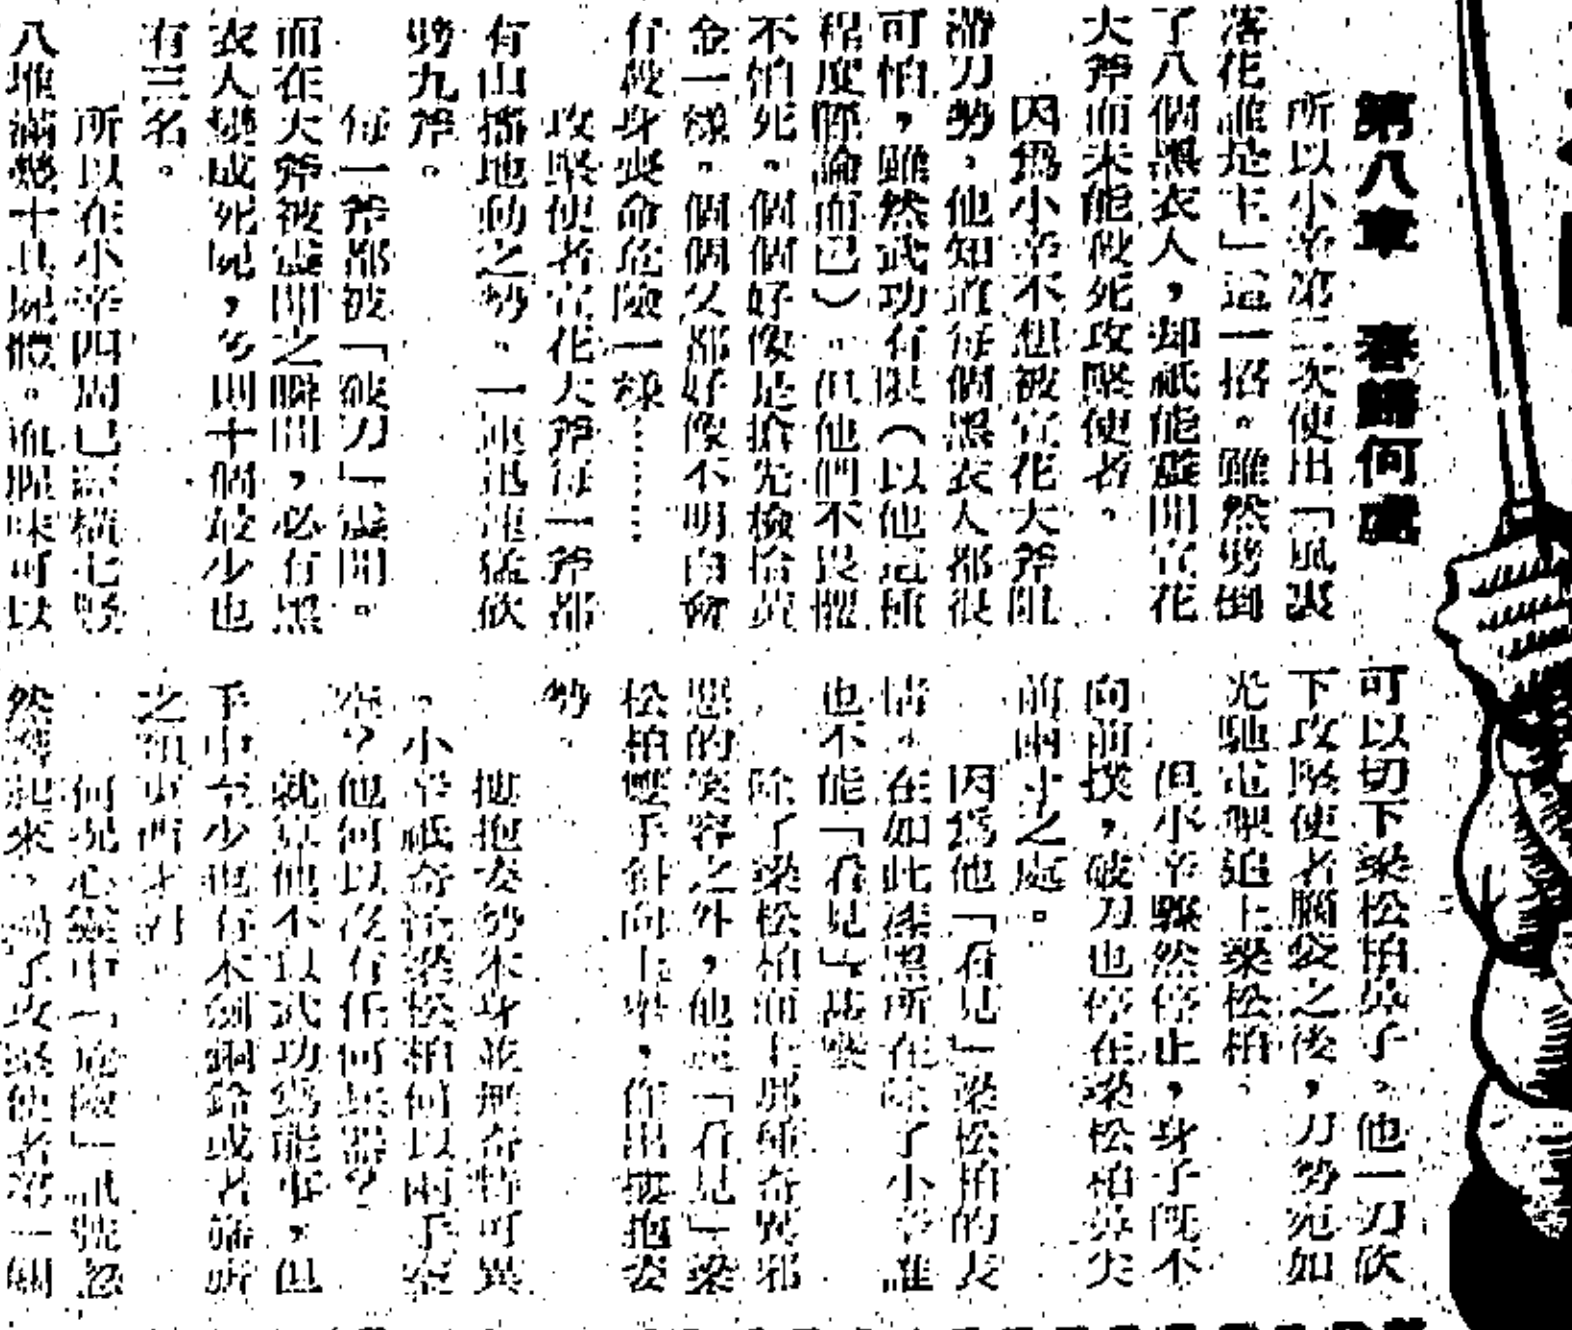 第八章　春歸何處
所以小辛第三次使出「風裏
落花誰是主」這一招。雖然劈倒
了八個黑衣人，却祇能盪開宣花
大斧而未能殺死攻堅使者。
因爲小辛不想被宣花大斧阻
滯刀勢。他知道每個黑衣人都很
可怕，雖然武功有限（以他這種
程度評論而已）。但他們不畏懼
不怕死。個個好像是搶先檢拾黃
金一樣。個個又都好像不明白會
有殺身喪命危險一樣……
攻堅使者宣花大斧每一斧都
有山搖地動之勢。一連迅速猛砍
劈九斧。
每一斧都被「破刀」盪開。
而在大斧被盪開之瞬間，必有黑
衣人變成死屍，多則十個最少也
有三名。
所以在小辛四周已經橫七豎
八堆滿幾十具屍體。血腥味可以
可以切下梁松柏鼻子。他一刀砍
下攻堅使者腦袋之後，刀勢宛如
光馳電掣追上梁松柏。
但小辛驟然停止，身子旣不
向前撲，破刀也停在梁松柏鼻尖
前兩寸之處。
因爲他「看見」梁松柏的表
情。在如此漆黑所在除了小辛誰
也不能「看見」甚麼
除了梁松柏面上那種奇異邪
惡的笑容之外，他還「看見」梁
松柏雙手斜向上舉，作出摟抱姿
勢。
摟抱姿勢本身並無奇特可異
。小辛祇奇怪梁松柏何以兩手空
空？他何以沒有任何兵器？
就算他不以武功爲能事，但
手中至少也有木劍銅鈴或者符
之類東西才對。
何況心靈中「危險」訊號忽
然 起來。 了攻堅使者第一個